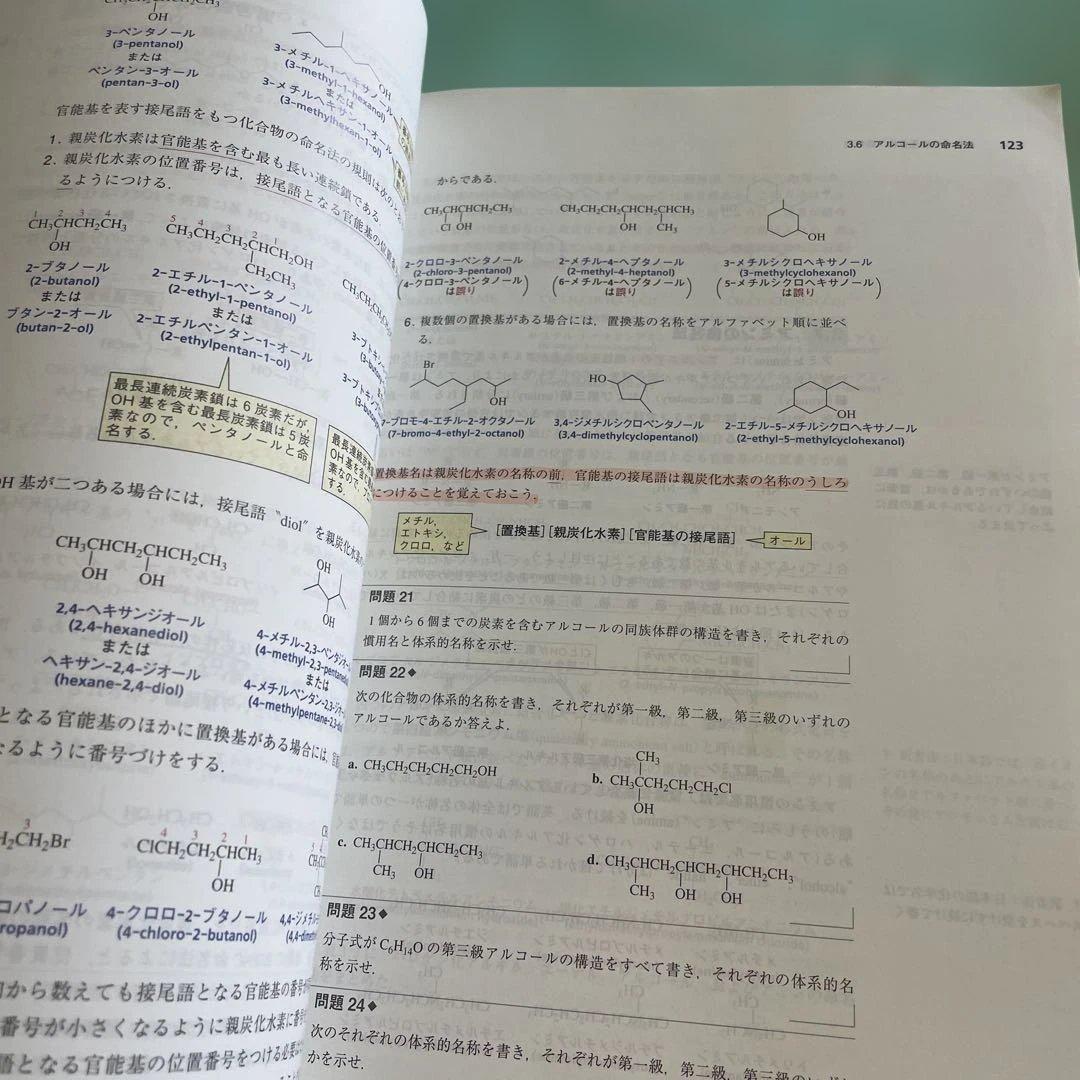 CH₃CH₂CHCH₂CH₃
OH
3-ペンタノール
(3-pentanol)
または
ペンタン-3-オール
(pentan-3-ol)
OH
3-メチル-1-ヘキサノール
(3-methyl-1-hexanol)
または
3-メチルヘキサン-1-オール
(3-methylhexan-1-ol)
官能基を表す接尾語をもつ化合物の命名法の規則は次のとお
1. 親炭化水素は官能基を含む最も長い連続鎖である.
2. 親炭化水素の位置番号は,接尾語となる官能基の位置番
るようにつける.
1 2 3 4
CH₃CHCH₂CH₃
OH
2-ブタノール
(2-butanol)
または
ブタン-2-オール
(butan-2-ol)
5 4 3 2 1
CH₃CH₂CH₂CHCH₂OH
CH₂CH₃
2-エチル-1-ペンタノール
(2-ethyl-1-pentanol)
または
2-エチルペンタン-1-オール
(2-ethylpentan-1-ol)
最長連続炭素鎖は6炭素だが,
OH基を含む最長炭素鎖は5炭
素なので,ペンタノールと命
名する.
OH 基が二つある場合には,接尾語 “diol” を親炭化水素の
CH₃CHCH₂CHCH₂CH₃
OH OH
2,4-ヘキサンジオール
(2,4-hexanediol)
または
ヘキサン-2,4-ジオール
(hexane-2,4-diol)
OH
OH
4-メチル-2,3-ペンタンジオー
(4-methyl-2,3-pentanedio
または
4-メチルペンタン-2,3-ジオー
(4-methylpentane-2,3-dio
となる官能基のほかに置換基がある場合には,
なるように番号づけをする.
3
H₂CH₂Br
コパノール
ropanol)
4 3 2 1
ClCH₂CH₂CHCH₃
OH
4-クロロ-2-ブタノール
(4-chloro-2-butanol)
から数えても接尾語となる官能基の番号が
番号が小さくなるように親炭化水素に番号
語となる官能基の位置番号をつける必要は
3.6 アルコールの命名法 123
からである.
CH₃CHCHCH₂CH₃
Cl OH
2-クロロ-3-ペンタノール
(2-chloro-3-pentanol)
(4-クロロ-3-ペンタノール
は誤り)
CH₃CH₂CH₂CHCH₂CHCH₃
OH CH₃
2-メチル-4-ヘプタノール
(2-methyl-4-heptanol)
(6-メチル-4-ヘプタノール
は誤り)
OH
3-メチルシクロヘキサノール
(3-methylcyclohexanol)
(5-メチルシクロヘキサノール
は誤り)
6. 複数個の置換基がある場合には,置換基の名称をアルファベット順に並べ
る.
Br
OH
7-ブロモ-4-エチル-2-オクタノール
(7-bromo-4-ethyl-2-octanol)
HO
3,4-ジメチルシクロペンタノール
(3,4-dimethylcyclopentanol)
OH
2-エチル-5-メチルシクロヘキサノール
(2-ethyl-5-methylcyclohexanol)
置換基名は親炭化水素の名称の前,官能基の接尾語は親炭化水素の名称のうしろ
につけることを覚えておこう.
メチル,
エトキシ,
クロロ,など
[置換基][親炭化水素][官能基の接尾語]
オール
問題 21
1個から6個までの炭素を含むアルコールの同族体群の構造を書き,それぞれの
慣用名と体系的名称を示せ.
問題 22◆
次の化合物の体系的名称を書き,それぞれが第一級,第二級,第三級のいずれの
アルコールであるか答えよ.
a. CH₃CH₂CH₂CH₂CH₂OH
CH₃
b. CH₃CCH₂CH₂CH₂Cl
OH
c. CH₃CHCH₂CHCH₂CH₃
CH₃ OH
d. CH₃CHCH₂CHCH₂CHCH₂CH₃
CH₃ OH OH
問題 23◆
分子式が C₆H₁₄O の第三級アルコールの構造をすべて書き,それぞれの体系的名
称を示せ.
問題 24◆
次のそれぞれの体系的名称を書き,それぞれが第一級,第二級,第三級のいずれ
かを示せ.